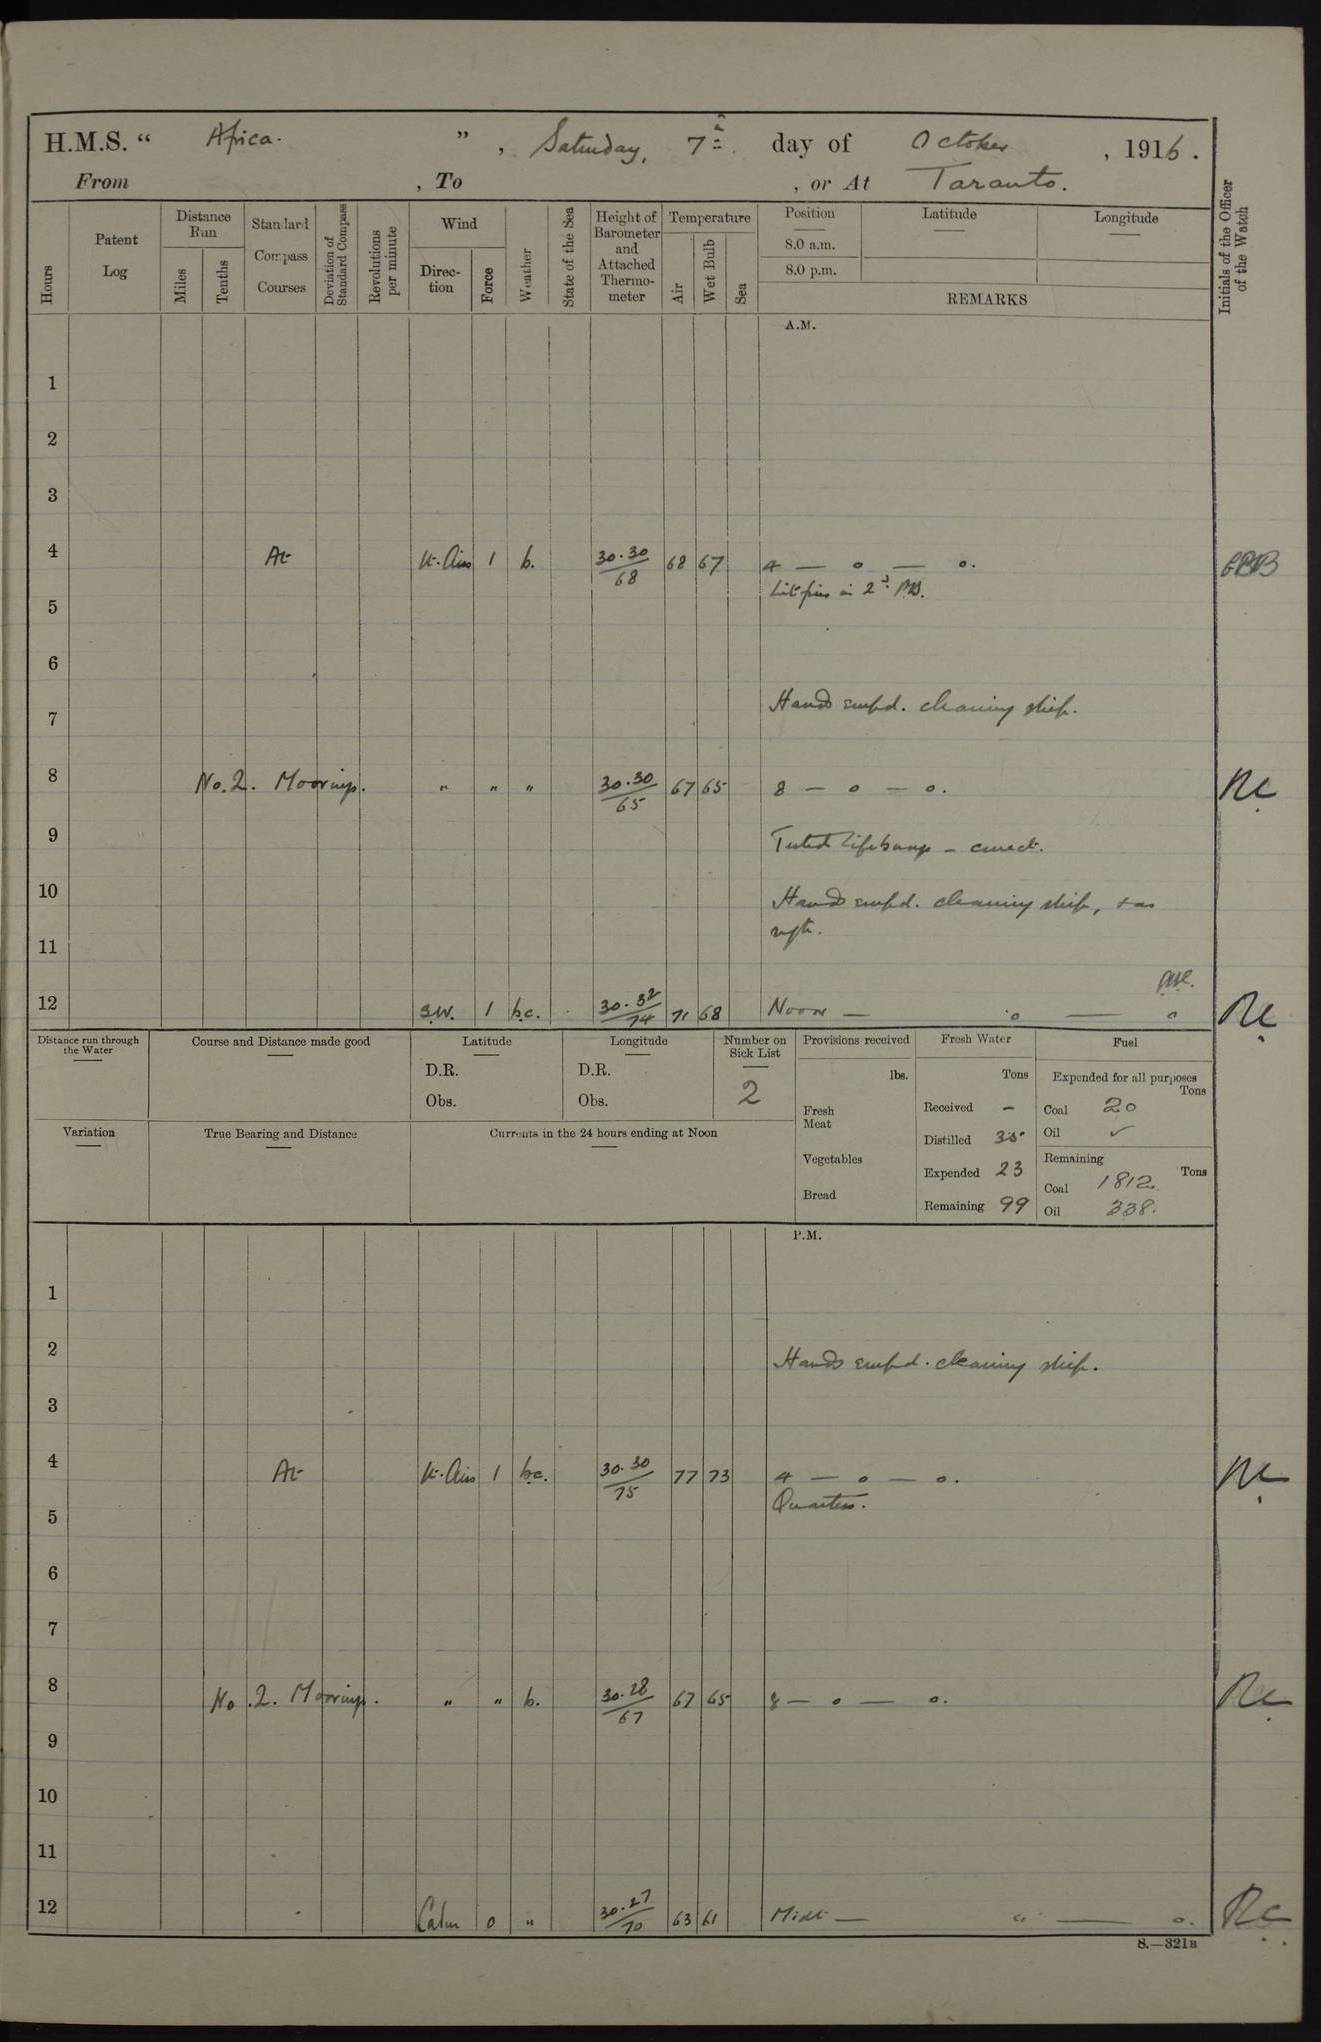 H.M.S. “ Africa. ” , Saturday, 7th day of October , 1916 .
From , To , or At Taranto.
Hours
Patent Log
Distance Run
Miles
Tenths
Standard Compass Courses
Deviation of Standard Compass
Revolutions per minute
Wind
Direc- tion
Force
Weather
State of the Sea
Height of Barometer and Attached Thermo- meter
Temperature
Air
Wet Bulb
Sea
Position
Latitude
Longitude
8.0 a.m.
8.0 p.m.
REMARKS
Initials of the Officer of the Watch
A.M.
1
2
3
4 At Lt. Airs 1 b. 30.30/68 68 67 4 — o — o.
5 Lit fires in 2nd P.B.
6
7 Hands empd. cleaning ship.
8 No. 2. Moorings. " " " 30.30/65 67 65 8 — o — o.
9 Tested lifebuoys – correct.
10 Hands empd. cleaning ship, & as
reqte.
11
12 S.W. 1 b.c. 30.32/74 71 68 Noon — o — o
Distance run through the Water
Course and Distance made good
Latitude
D.R.
Obs.
Longitude
D.R.
Obs.
Number on Sick List
2
Provisions received
lbs.
Fresh Meat
Vegetables
Bread
Fresh Water
Tons
Received –
Distilled 35
Expended 23
Remaining 99
Fuel
Expended for all purposes
Tons
Coal 20
Oil ✓
Remaining
Tons
Coal 1812
Oil 338.
Variation
True Bearing and Distance
Currents in the 24 hours ending at Noon
P.M.
1
2 Hands empd. cleaning ship.
3
4 At Lt. Airs 1 b.c. 30.30/75 77 73 4 — o — o.
Quarters.
5
6
7
8 No. 2. Moorings. " " b. 30.28/67 67 65 8 — o — o.
9
10
11
12 Calm 0 " 30.27/70 63 61 Midt — o — o.
S.—321B